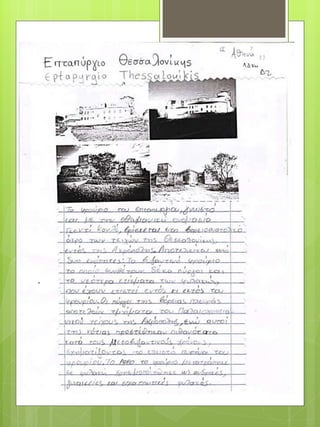 Αθηνά
Επταπύργιο Θεσσαλονίκης
Δ2
Eptapyrgio Thessalonikis
Το φρούριο του επταπυργίου, γνωστό
και με την οθωμανική ονομασία
Γεντί Κουλέ, βρίσκεται στο βορειοανατολικό
άκρο των τειχών της Θεσσαλονίκης,
εντός της Ακρόπολης. Αποτελείται από
δυο ενότητες: Το βυζαντινό φρούριο
το οποίο συνθέτουν δέκα πύργοι και
τα νεότερα κτίσματα των φυλακών,
που έχουν κτιστεί εντός κι εκτός του
φρουρίου. Οι πύργοι της βόρειας πλευράς
αποτελούν τμήματα του Παλαιοχριστια-
νικού τείχους της Ακρόπολης, ενώ αυτοί
της νότιας προστέθηκαν πιθανότατα
κατά τους Μεσοβυζαντινούς χρόνους,
σχηματίζοντας το κλειστό του
φρουρίου. Το 1890 το φρούριο μετατράπηκε
σε φυλακή ανδρικές,
γυναικείες και φυλακές.